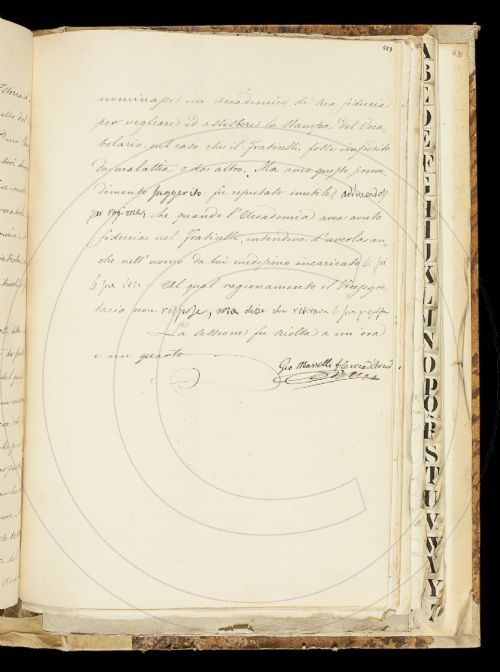 nominasse un Accademico di sua fiducia
per vegliare ed assistere la stampa del Voca
bolario nel caso che il Fraticelli fosse impedito
da malattia o da altro. Ma anco questo prove
dimento suggerito fu reputato inutile, adducendosi
per ragione, che quando l'Accademia avea avuto
fiducia nel Fraticelli, intendeva d'averla an
che nell'uomo da lui medesimo incaricato di far
le sue veci. Al qual ragionamento il Vicesegre
tario non rispose, ma disse che
La sessione fu sciolta a un'ora
e un quarto
Gio Masselli
A
B
C
D
E
F
G
H
I
J
K
L
M
N
O
P
Q
R
S
T
U
V
W
X
Y
Z